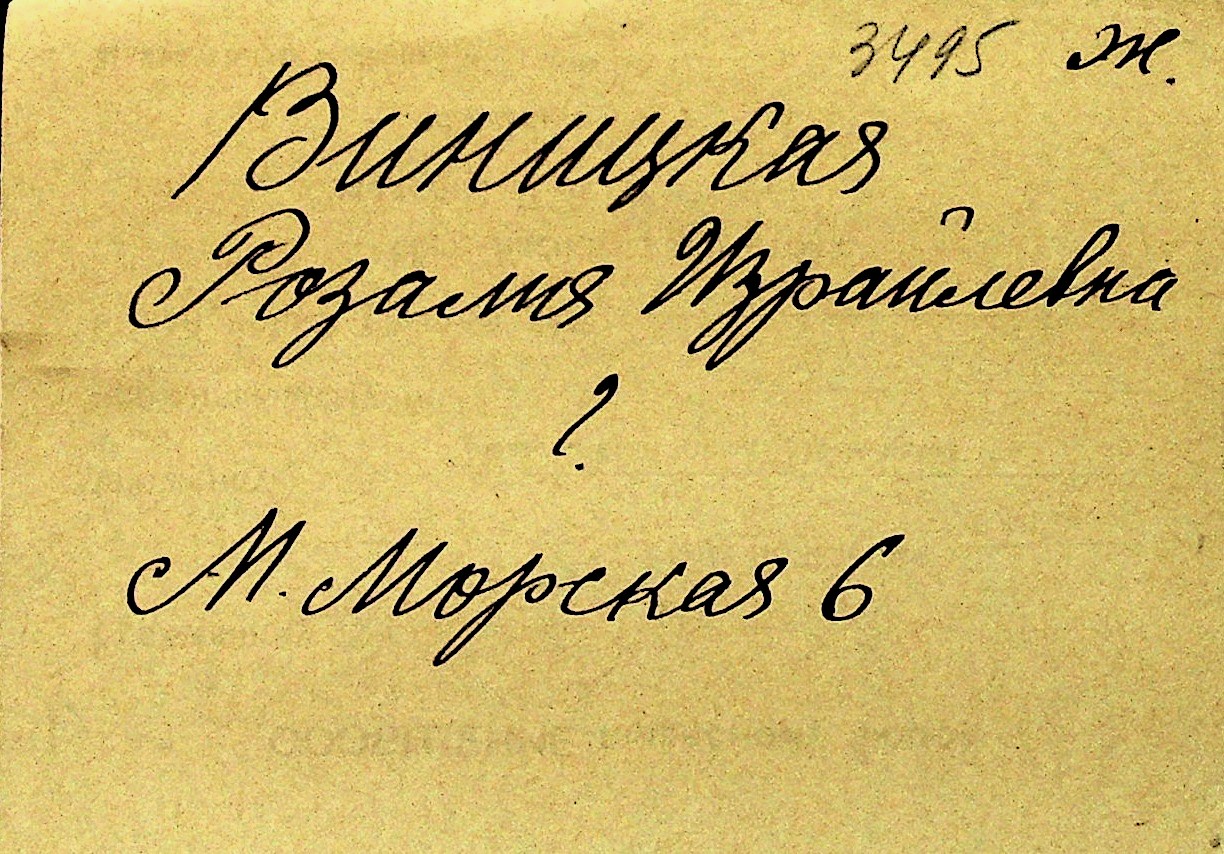 3495 ж.
Виницкая
Розалия Израйлевна
?
М. Морская 6